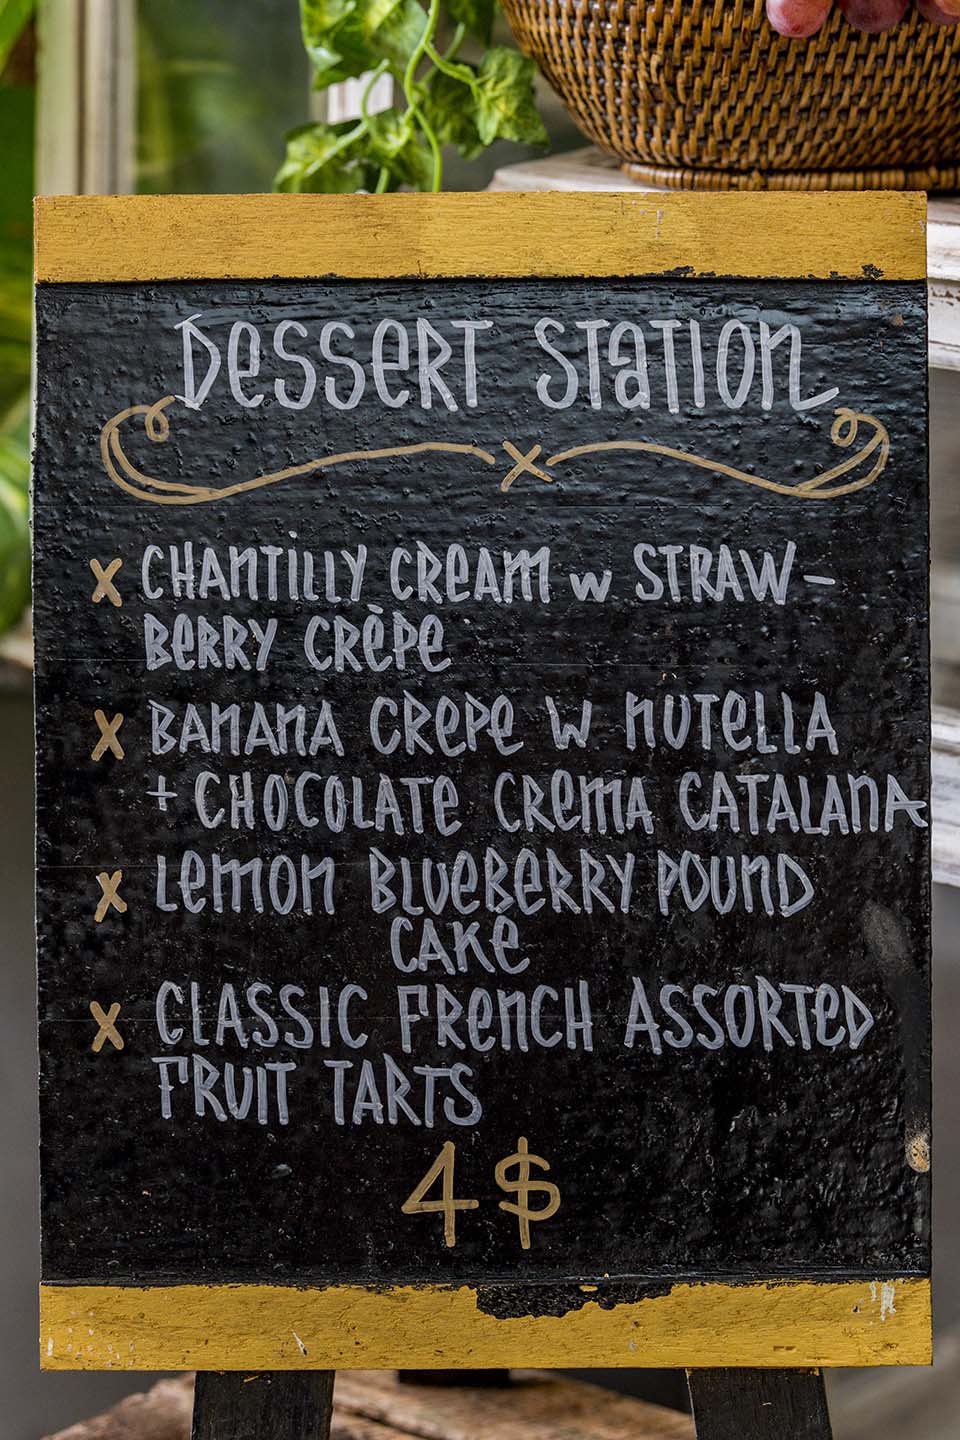 Dessert Station
x Chantilly Cream w Straw-
berry Crèpe
x Banana Crepe w Nutella
+ Chocolate Crema Catalana
x Lemon Blueberry Pound
Cake
x Classic French Assorted
Fruit Tarts
4$